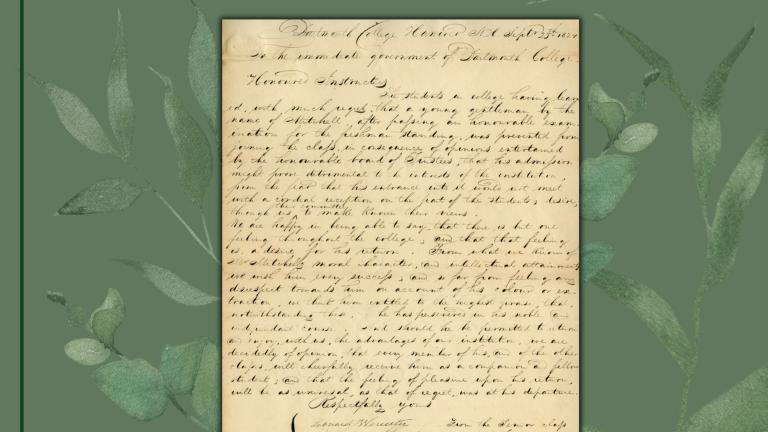 Dartmouth College Hanover N.H Septr 23d 1824
To the immediate government of Dartmouth College
Honoured Instructers
The students in college having learn-
ed, with much regret, that a young gentleman by the
name of Mitchell, after passing an honourable exam-
ination for the freshman standing, was prevented from
joining the class, in consequence of opinions entertained
by the honourable board of Trustees, that his admission
might prove detrimental to the interests of the institution,
from the fear that his entrance into it would not meet
with a cordial reception on the part of the students; desire,
through us, their committee to make known their views.
We are happy in being able to say, that there is but one
feeling throughout the college; and that that feeling
is, a desire for his return. From what we know of
Mr Mitchell's moral character, and intellectual attainments
we wish him every success; and so far from feeling any
disrespect towards him on account of his colour or ex-
traction, we think him entitled to the highest praise, that,
notwithstanding this, he has persevered in his noble and
independent course. And should he be permitted to return
and enjoy, with us, the advantages of our institution, we are
decidedly of opinion, that every member of his, and of the other
classes, will cheerfully receive him as a companion and fellow
student; and that the feeling of pleasure upon his return,
will be as universal, as that of regret, was at his departure.
Respectfully yours
Leonard Worcester From the Senior class